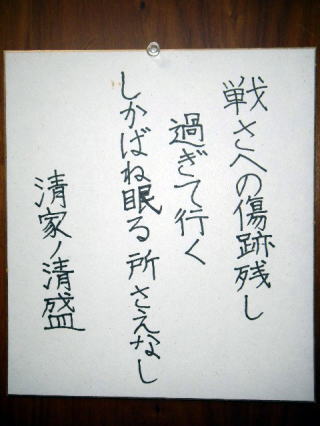 戦さへの傷跡残し
過ぎて行く
しかばね眠る所さえなし
清家ノ清盛